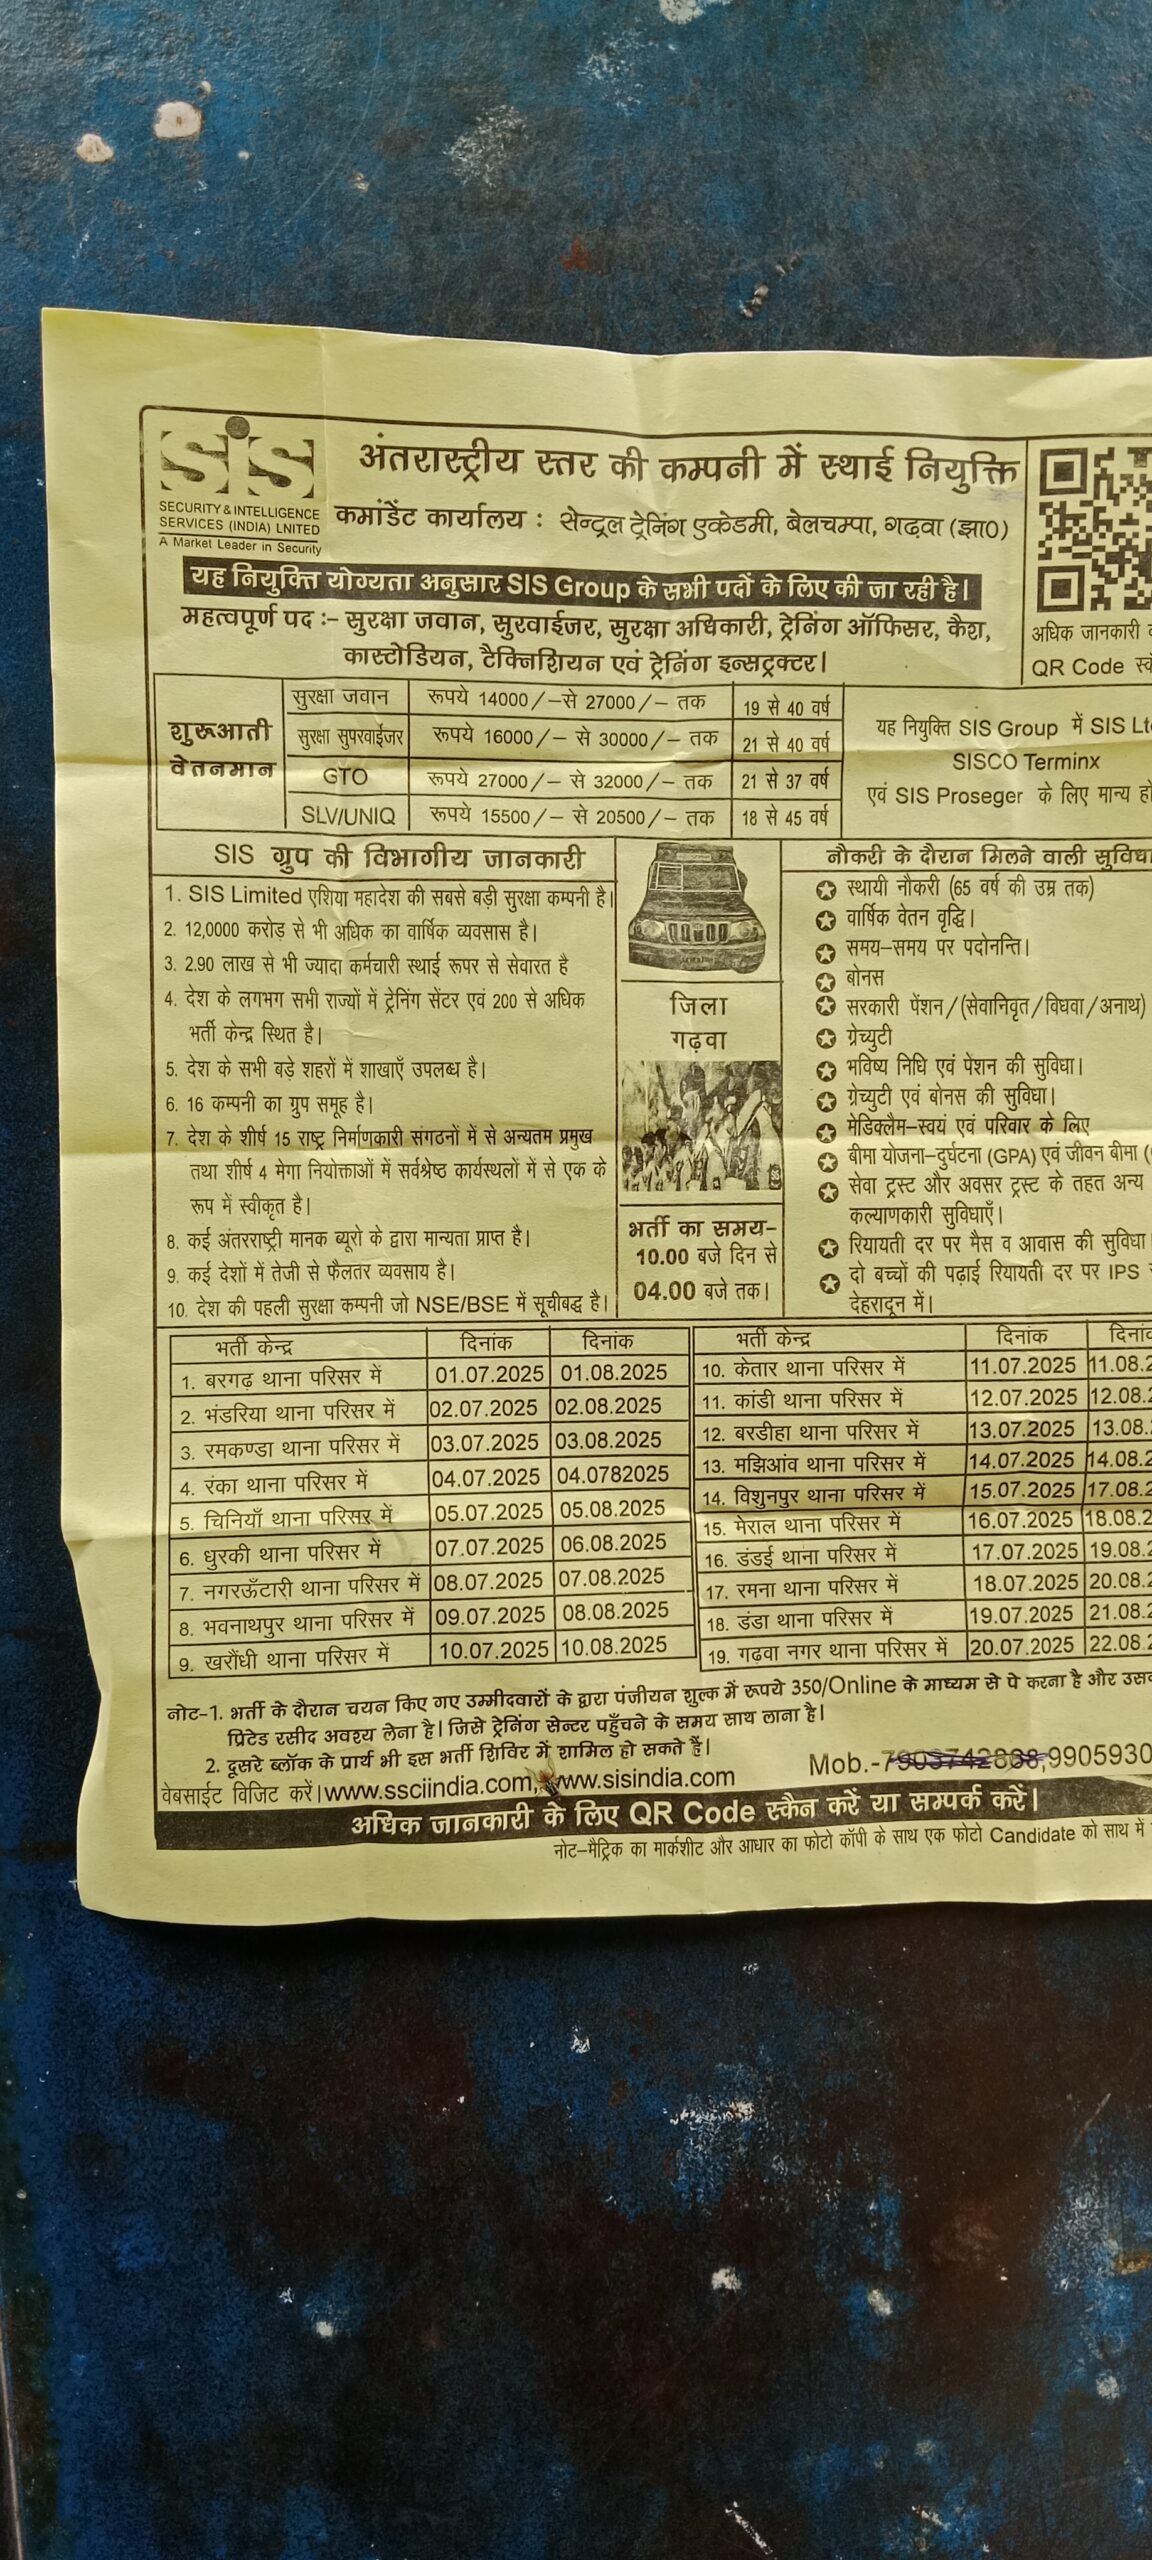 SiS
SECURITY & INTELLIGENCE
SERVICES (INDIA) LNITED
A Market Leader in Security
अंतरास्ट्रीय स्तर की कम्पनी में स्थाई नियुक्ति
कमांडेंट कार्यालय : सेन्ट्रल ट्रेनिंग एकेडमी, बेलचम्पा, गढ़वा (झा0)
यह नियुक्ति योग्यता अनुसार SIS Group के सभी पदों के लिए की जा रही है।
महत्वपूर्ण पद :– सुरक्षा जवान, सुरवाईजर, सुरक्षा अधिकारी, ट्रेनिंग ऑफिसर, कैश,
कास्टोडियन, टैक्निशियन एवं ट्रेनिंग इन्सट्रक्टर।
अधिक जानकारी
QR Code
शुरूआती
वेतनमान
सुरक्षा जवान रूपये 14000/–से 27000/– तक 19 से 40 वर्ष
सुरक्षा सुपरवाईजर रूपये 16000/– से 30000/– तक 21 से 40 वर्ष
GTO रूपये 27000/– से 32000/– तक 21 से 37 वर्ष
SLV/UNIQ रूपये 15500/– से 20500/– तक 18 से 45 वर्ष
यह नियुक्ति SIS Group में SIS
SISCO Terminx
एवं SIS Proseger के लिए मान्य
SIS ग्रुप की विभागीय जानकारी
1. SIS Limited एशिया महादेश की सबसे बड़ी सुरक्षा कम्पनी है।
2. 12,0000 करोड़ से भी अधिक का वार्षिक व्यवसास है।
3. 2.90 लाख से भी ज्यादा कर्मचारी स्थाई रूपर से सेवारत है
4. देश के लगभग सभी राज्यों में ट्रेनिंग सेंटर एवं 200 से अधिक
भर्ती केन्द्र स्थित है।
5. देश के सभी बड़े शहरों में शाखाएँ उपलब्ध है।
6. 16 कम्पनी का ग्रुप समूह है।
7. देश के शीर्ष 15 राष्ट्र निर्माणकारी संगठनों में से अन्यतम प्रमुख
तथा शीर्ष 4 मेगा नियोक्ताओं में सर्वश्रेष्ठ कार्यस्थलों में से एक के
रूप में स्वीकृत है।
8. कई अंतरराष्ट्री मानक ब्यूरो के द्वारा मान्यता प्राप्त है।
9. कई देशों में तेजी से फैलतर व्यवसाय है।
10. देश की पहली सुरक्षा कम्पनी जो NSE/BSE में सूचीबद्ध है।
जिला
गढ़वा
भर्ती का समय–
10.00 बजे दिन से
04.00 बजे तक।
नौकरी के दौरान मिलने वाली
स्थायी नौकरी (65 वर्ष की उम्र तक)
वार्षिक वेतन वृद्धि।
समय–समय पर पदोनन्ति।
बोनस
सरकारी पेंशन/(सेवानिवृत/विधवा/अनाथ)
ग्रेच्युटी
भविष्य निधि एवं पेशन की सुविधा।
ग्रेच्युटी एवं बोनस की सुविधा।
मेडिक्लैम–स्वयं एवं परिवार के लिए
बीमा योजना–दुर्घटना (GPA) एवं जीवन बीमा
सेवा ट्रस्ट और अवसर ट्रस्ट के तहत अन्य
कल्याणकारी सुविधाएँ।
रियायती दर पर मैस व आवास की सुविधा
दो बच्चों की पढ़ाई रियायती दर पर IPS
देहरादून में।
भर्ती केन्द्र दिनांक दिनांक
1. बरगढ़ थाना परिसर में 01.07.2025 01.08.2025
2. भंडरिया थाना परिसर में 02.07.2025 02.08.2025
3. रमकण्डा थाना परिसर में 03.07.2025 03.08.2025
4. रंका थाना परिसर में 04.07.2025 04.0782025
5. चिनियाँ थाना परिसर में 05.07.2025 05.08.2025
6. धुरकी थाना परिसर में 07.07.2025 06.08.2025
7. नगरऊँटारी थाना परिसर में 08.07.2025 07.08.2025
8. भवनाथपुर थाना परिसर में 09.07.2025 08.08.2025
9. खरौंधी थाना परिसर में 10.07.2025 10.08.2025
भर्ती केन्द्र दिनांक
10. केतार थाना परिसर में 11.07.2025 11.08.2
11. कांडी थाना परिसर में 12.07.2025 12.08.2
12. बरडीहा थाना परिसर में 13.07.2025 13.08.
13. मझिआंव थाना परिसर में 14.07.2025 14.08.2
14. विशुनपुर थाना परिसर में 15.07.2025 17.08.2
15. मेराल थाना परिसर में 16.07.2025 18.08.2
16. डंडई थाना परिसर में 17.07.2025 19.08.2
17. रमना थाना परिसर में 18.07.2025 20.08.2
18. डंडा थाना परिसर में 19.07.2025 21.08.2
19. गढ़वा नगर थाना परिसर में 20.07.2025 22.08.2
नोट–1. भर्ती के दौरान चयन किए गए उम्मीदवारों के द्वारा पंजीयन शुल्क में रूपये 350/Online के माध्यम से पे करना है और
प्रिटेड रसीद अवश्य लेना है। जिसे ट्रेनिंग सेन्टर पहुँचने के समय साथ लाना है।
2. दूसरे ब्लॉक के प्रार्थ भी इस भर्ती शिविर में शामिल हो सकते हैं।
Mob.-7903742888,9905930
वेबसाईट विजिट करें। www.ssciindia.com, www.sisindia.com
अधिक जानकारी के लिए QR Code स्कैन करें या सम्पर्क करें।
नोट–मैट्रिक का मार्कशीट और आधार का फोटो कॉपी के साथ एक फोटो Candidate को साथ में